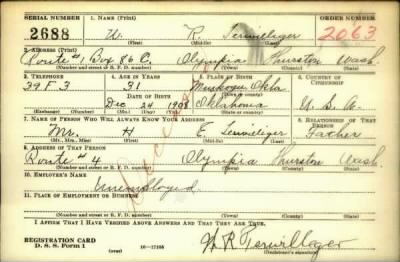 SERIAL NUMBER 1. NAME (Print) ORDER NUMBER
2688 W. R. Terwileger 2063
(First) (Middle) (Last)
2. ADDRESS (Print)
Route #1 Box 86 C. Olympia Thurston Wash.
(Number and street or R. F. D. number) (Town) (County) (State)
3. TELEPHONE 4. AGE IN YEARS 5. PLACE OF BIRTH 6. COUNTRY OF CITIZENSHIP
39F3 31 Muskogee Okla.
DATE OF BIRTH
Dec 24 1908 Oklahoma U. S. A.
(Exchange) (Number) (Mo.) (Day) (Yr.) (State or country)
7. NAME OF PERSON WHO WILL ALWAYS KNOW YOUR ADDRESS 8. RELATIONSHIP OF THAT PERSON
Mr. H E. Terwileger Father
(Mr., Mrs., Miss) (First) (Middle) (Last)
9. ADDRESS OF THAT PERSON
Route # 4 Olympia Thurston Wash.
(Number and street or R. F. D. number) (Town) (County) (State)
10. EMPLOYER'S NAME
Unemployed
11. PLACE OF EMPLOYMENT OR BUSINESS
(Number and street or R. F. D. number) (Town) (County) (State)
I AFFIRM THAT I HAVE VERIFIED ABOVE ANSWERS AND THAT THEY ARE TRUE.
REGISTRATION CARD
D. S. S. Form 1 16-17105 W R Terwilleger
(Registrant's signature)